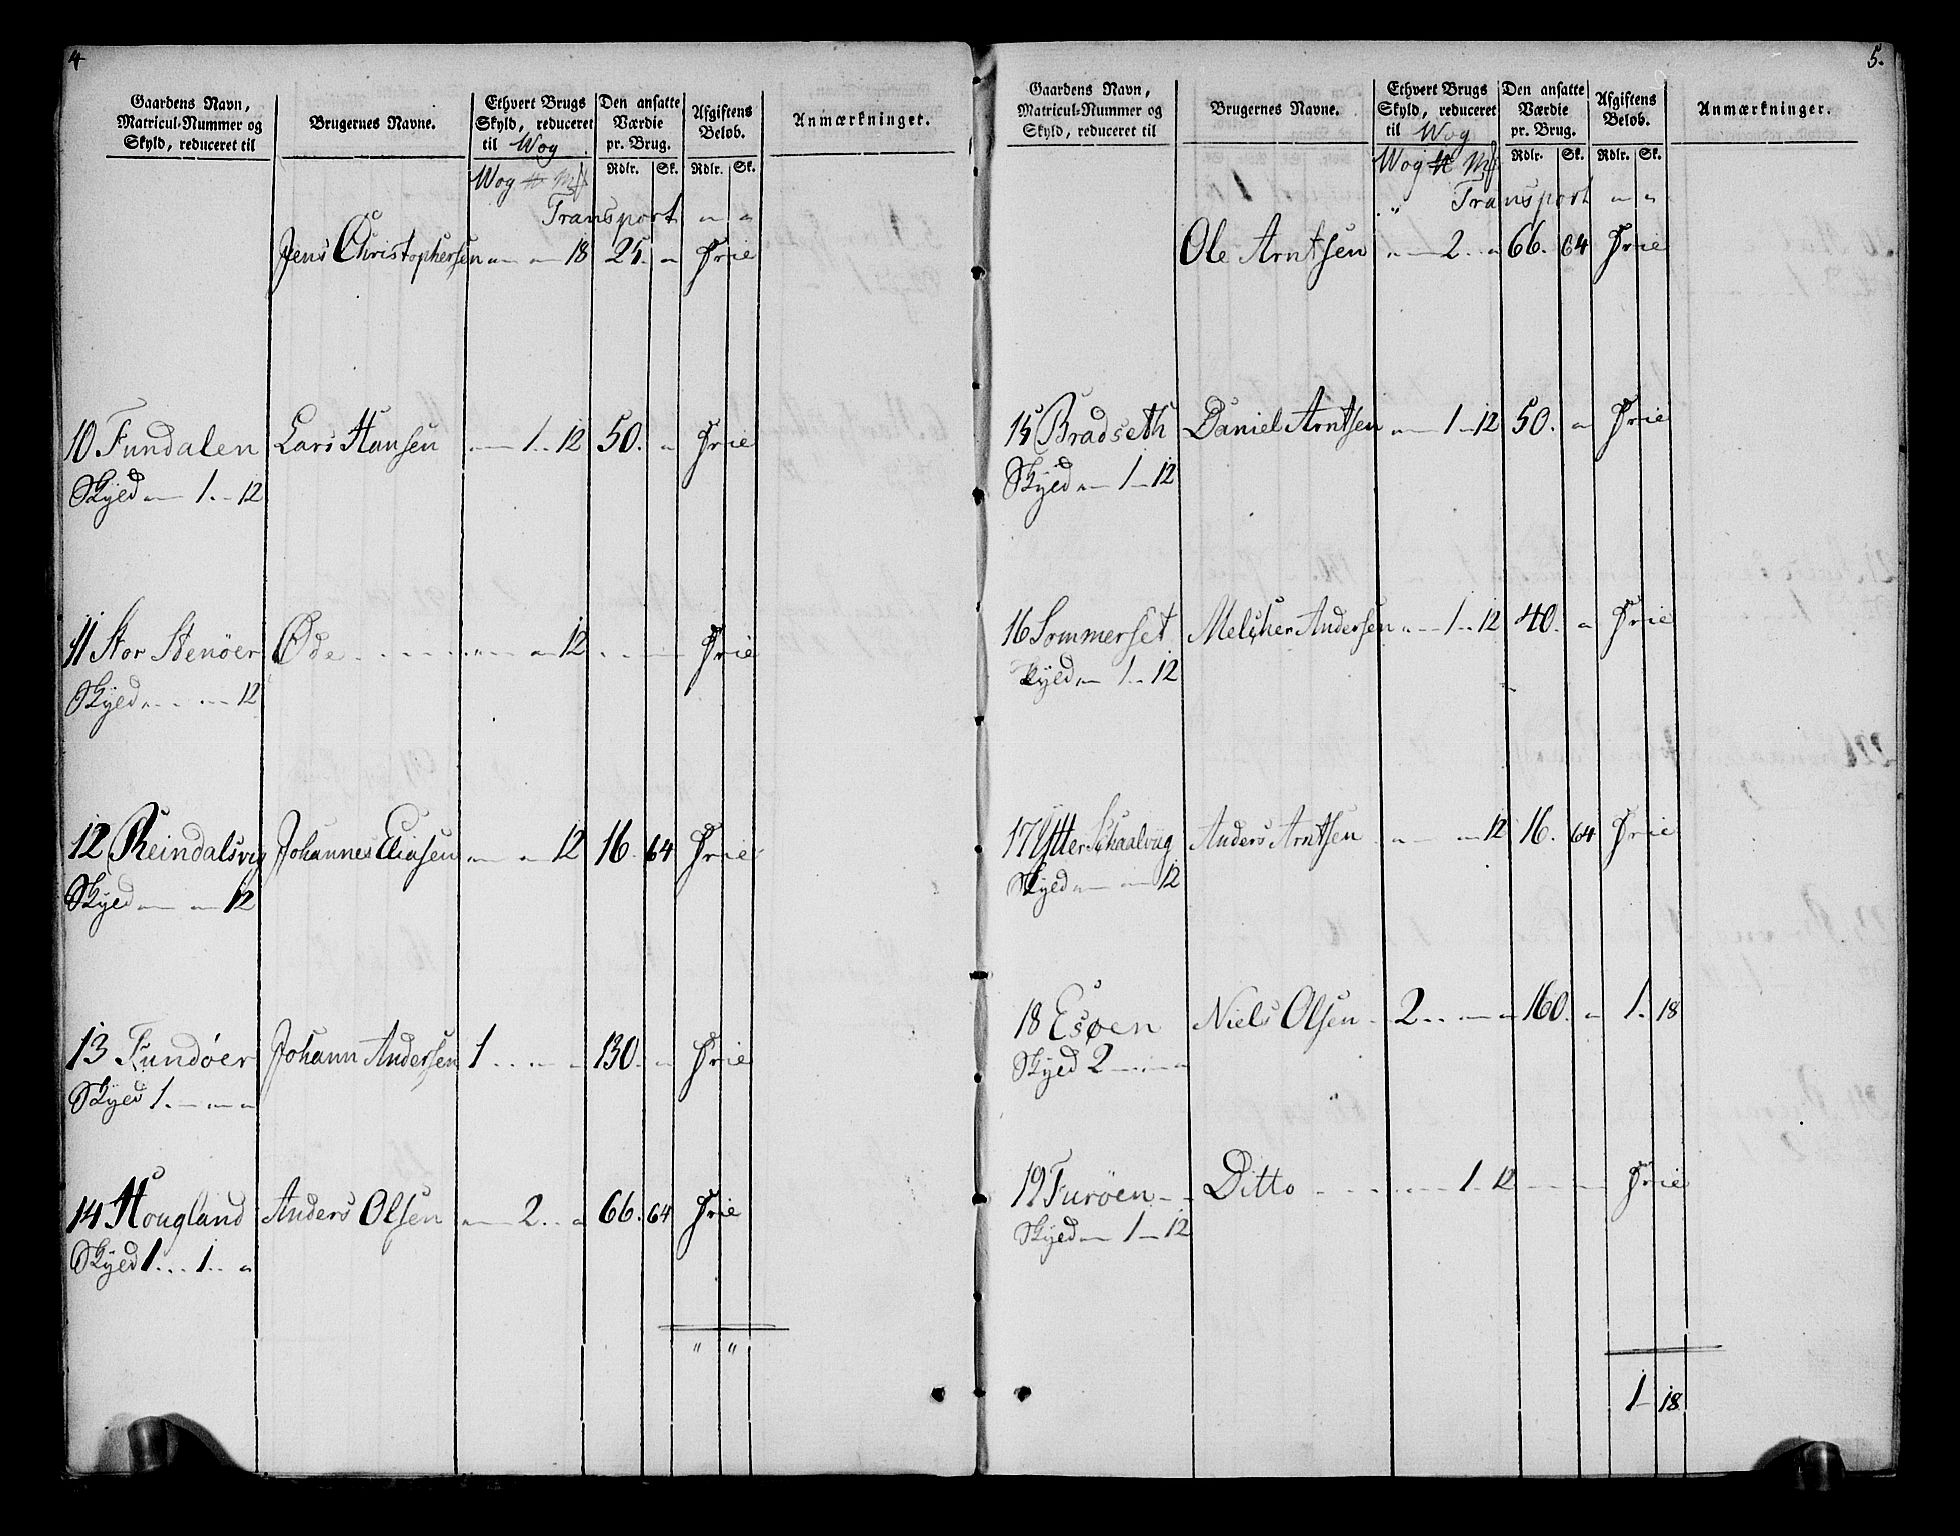 4
Gaardens Navn, Matricul-Nummer og Skyld, reduceret til
Brugernes Navne.
Ethvert Brugs Skyld, reduceret til Wog
Den ansatte Værdie pr. Brug.
Afgiftens Beløb.
Anmærkninger.
Rdlr. Sk. Rdlr. Sk.
Wog ℔ Mk
Transport " "
Jens Christophersen " " 18 25. " Frie
10 Fundalen Lars Hansen " 1 " 12 50. " Frie
Skyld " 1 " 12
11 Stor Stenöer Öde " " 12 Frie
Skyld " " 12
12 Reindalsvig Johannes Eliasen " " 12 16. 64 Frie
Skyld " " 12
13 Fundøer Johann Andersen 1 " " 130. " Frie
Skyld 1. " "
14 Hougland Anders Olsen " 2 " 66. 64 Frie
Skyld 1 " 1 "
" "
5.
Gaardens Navn, Matricul-Nummer og Skyld, reduceret til
Brugernes Navne.
Ethvert Brugs Skyld, reduceret til Wog
Den ansatte Værdie pr. Brug.
Afgiftens Beløb.
Anmærkninger.
Rdlr. Sk. Rdlr. Sk.
Wog ℔ Mk
Transport " "
Ole Arntsen " 2 " 66. 64 Frie
15 Bradseth Daniel Arntsen " 1 " 12 50. " Frie
Skyld " 1 " 12
16 Sommerset Melcher Andersen " 1 " 12 40. " Frie
Skyld " 1 " 12
17 Ytter Skaalvug Anders Arntsen " " 12 16. 64 Frie
Skyld " " 12
18 Esøen Niels Olsen 2 " " 160. " 1. 18
Skyld 2 " "
19 Furöen Ditto 1 " 12 Frie
Skyld " 1 " 12
1 18